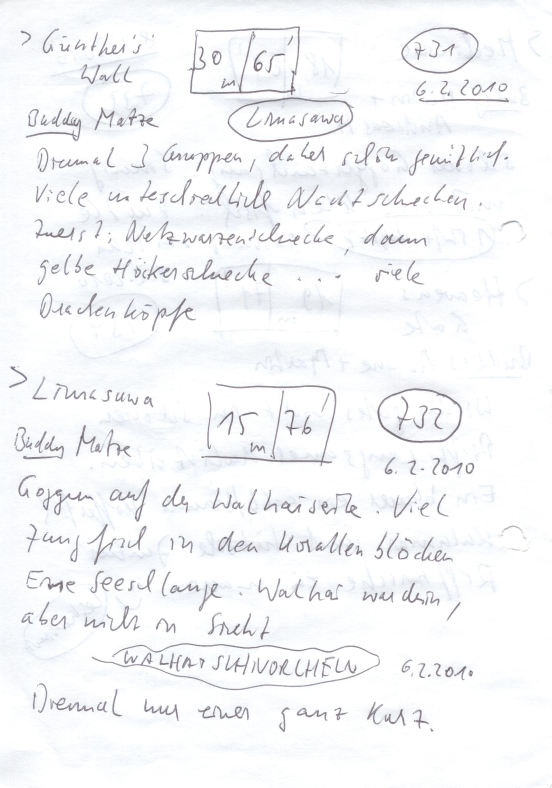 > Günther's
Wall
30 m | 65'
731
6.2.2010
Buddy Matze
Limasawa
Dreimal 3 Gruppen, daher schön gemütlich.
Viele unterschiedliche Nacktschnecken.
Zuerst: Netzwarzenschnecke, dann
gelbe Höckerschnecke . . . viele
Drachenköpfe
> Limasawa
15 m | 76'
732
Buddy Matze
6.2.2010
auf der Walhaiseite. Viel
Jungfisch in den Korallenblöcken
Eine Seeschlange. Walhai war drin,
aber nicht in Sicht
WALHAISCHNORCHELN
6.2.2010
Dreimal nur einer ganz kurz.